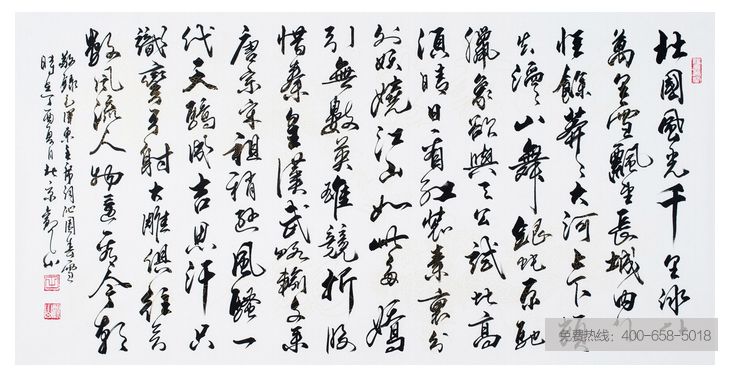 北國風光千里冰
萬里雪飄望長城内
惟餘莽莽大河上下
失滔滔山舞銀蛇原馳
臘象欲與天公試比高
須晴日看紅裝素裹分
外妖嬈江山如此多嬌
引無數英雄競折腰
惜秦皇漢武略輸文采
唐宗宋祖稍遜風騷一
代天驕成吉思汗只
識彎弓射大雕俱往矣
數風流人物還看今朝
敬錄毛澤東主席詞沁園春雪
時在丁酉夏月北京
免费热线：400-658-5018